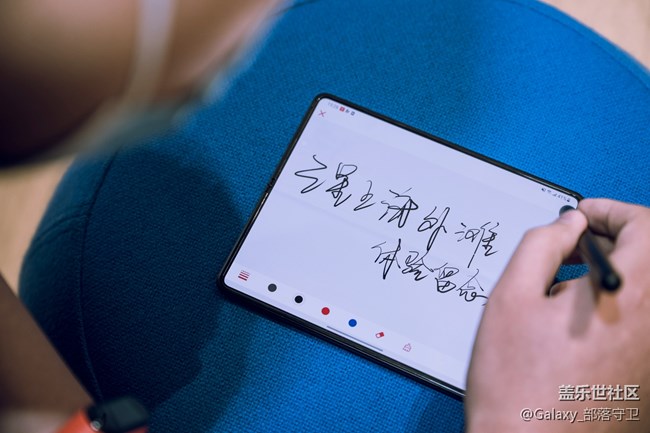 三星上海外滩
体验留念
盖乐世社区
@Galaxy_部落守卫